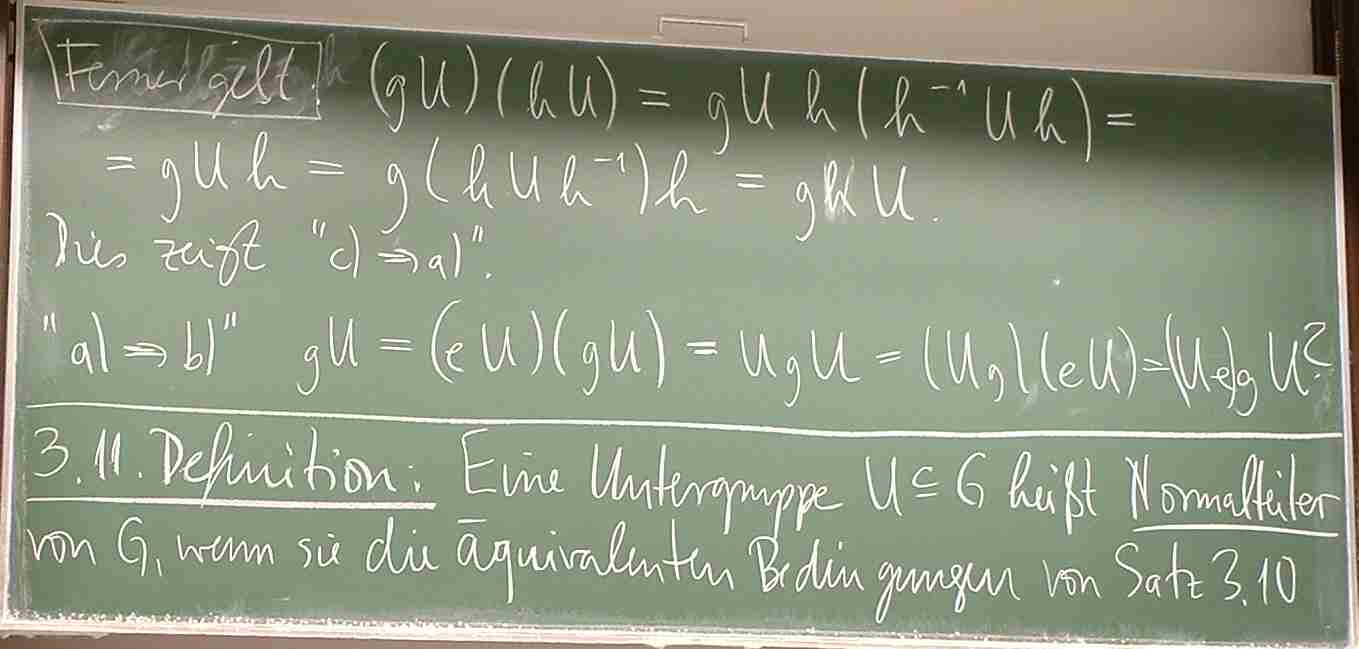 Ferner gilt: (gU)(hU) = gUh(h⁻¹Uh) =
= gUh = g(hUh⁻¹)h = ghU.
Dies zeigt "c) ⇒ a)".
"a) ⇒ b)" gU = (eU)(gU) = UgU = (Ug)(eU) = (Ue)gU?
3.11. Definition: Eine Untergruppe U ⊆ G heißt Normalteiler
von G, wenn sie die äquivalenten Bedingungen von Satz 3.10